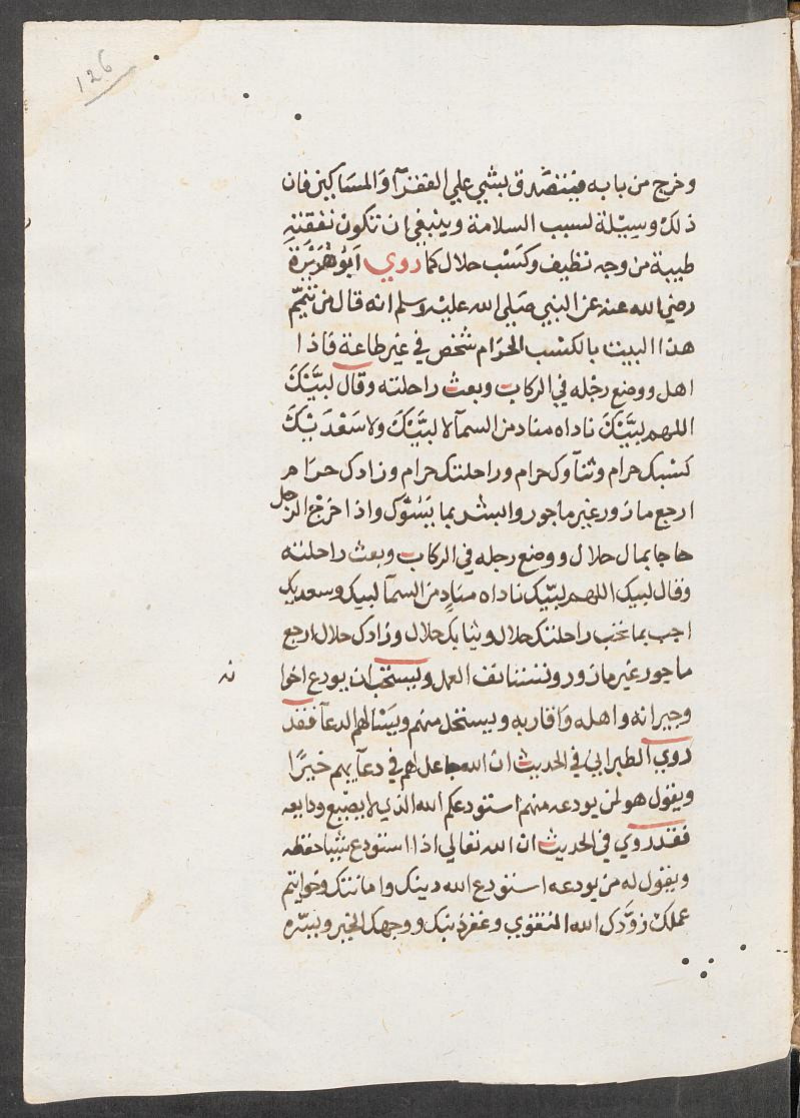 126
وخرج من بابه فيتصدق بشي علي الفقرآ والمساكين فان
ذلك وسيلة لسبب السلامة وينبغي ان تكون نفقته
طيبة من وجه نظيف وكسب حلال كما روي اَبوُ هُرَيْرَة
رضي الله عنه عن النبي صَلي الله عليه وسلم انه قال من تيمّم
هذا البيت بالكسْب الحرَام شخص في غير طاعة فاذا
اهل ووضع رجْله في الركاب وبعث راحلته وقال لبَّيْكَ
اللهم لبَّيْكَ ناداه مناد من السمآ لا لبَّيْكَ ولا سَعْدَيْكَ
كسْبك حرام وثيآوك حرام وراحلتك حرام وزادك حرام
ارجع مازور غير ماجور وابشر بما يَسُوْك واذا خرَج الرجل
حاجا بمال حلال ووضع رجله في الركاب وبعث راحلته
وقال لبيك اللهم لبّيك ناداه منادٍ من السمآ لبيك وسعديك
اجب بما تحب راحلتك حلال وثيابك حلال وزادك حلال ارجع
ماجور غير مازور وتستانف العمل ويستحب ان يودع اخوا
نه
وجيرانه واهله وَاقاربه ويستحل منهم ويَسْالهم الدعآ فقد
روي الطبراني في الحديث ان الله جاعل لهم في دعآيهم خيرًا
ويقول هو لمن يودعه منهم استودعكم الله الذي لا يضيع ودايعه
فقد روي في الحديث ان الله تعالي اذا استودع شيا حفظه
ويقول له من يودعه استودع الله دينك وامانتك وخواتيم
عملك زوَّدك الله التقوي وغفر ذنبك ووجهك الخير ويسّره